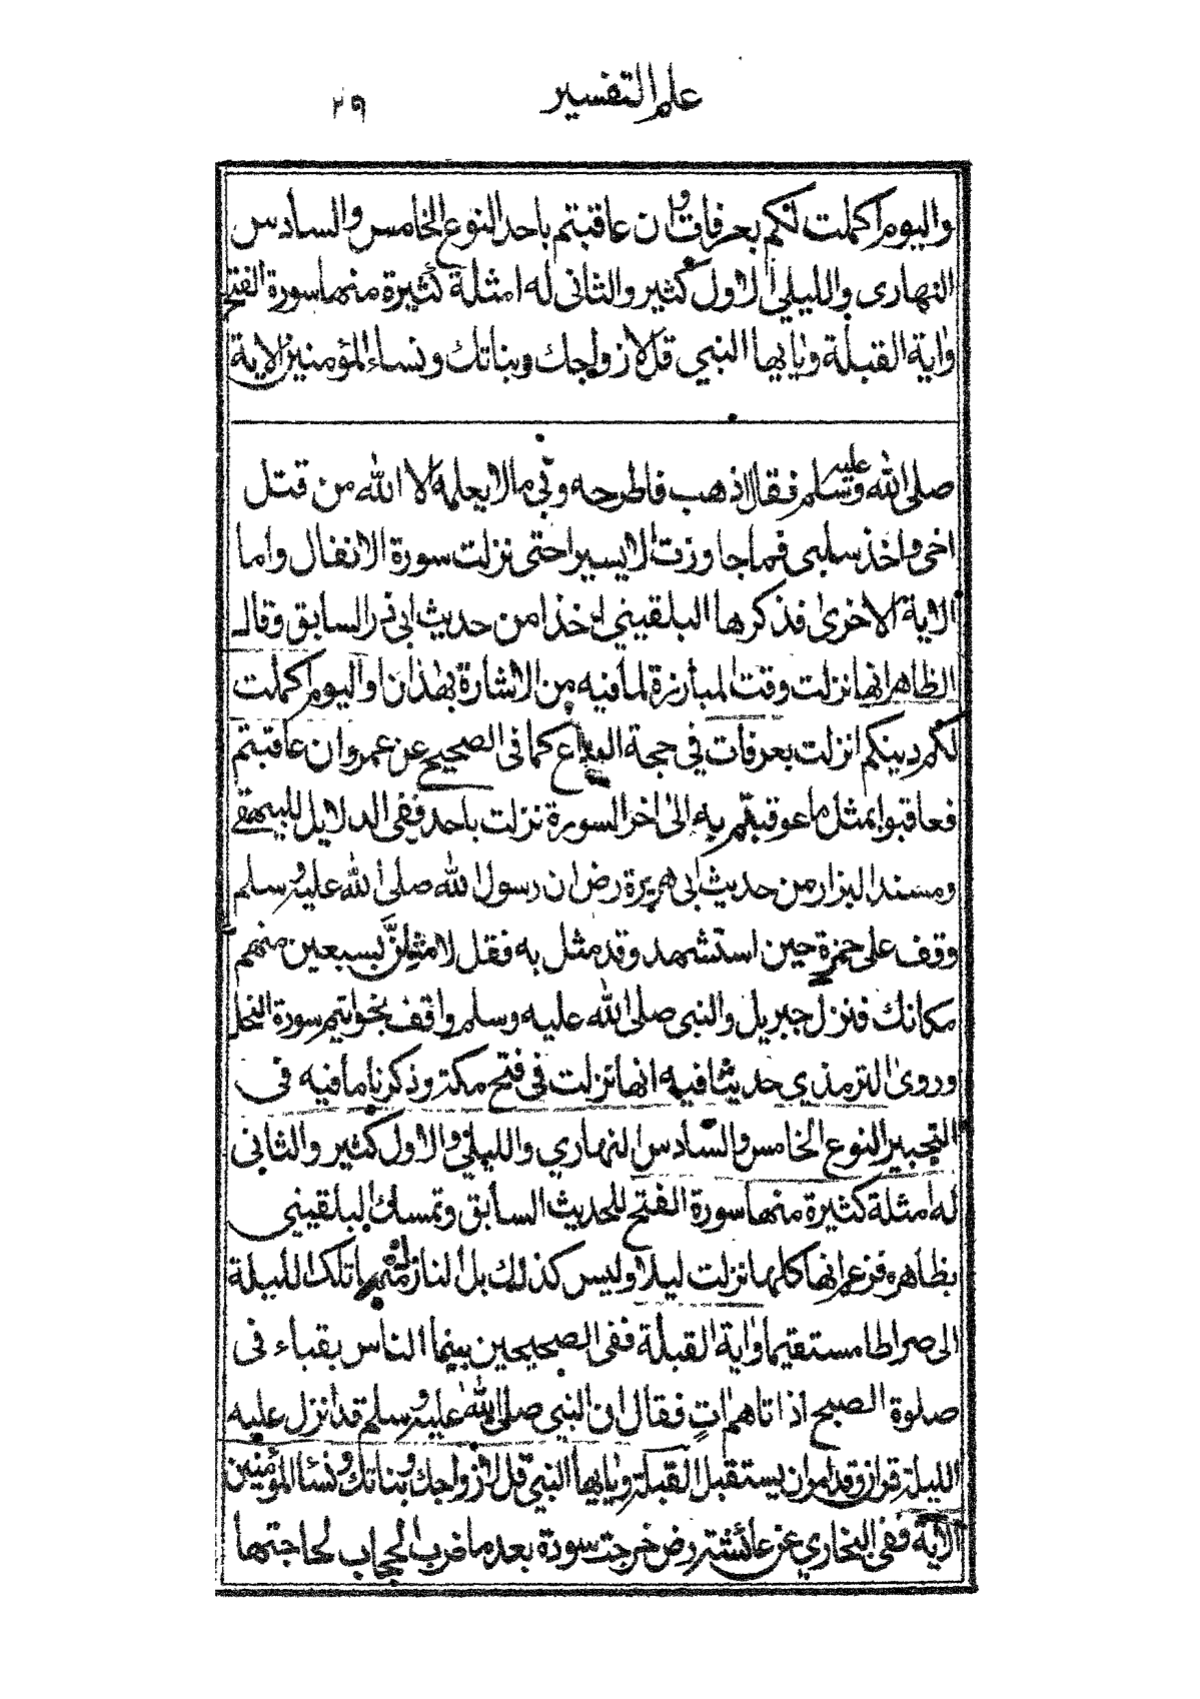 علم التفسير ٢٩
واليوم اكملت لكم بعرفات وان عاقبتم باحد النوع الخامس والسادس
النهارى والليلي الاول كثير والثانى له امثلة كثيرة منها سورة الفتح
واية القبلة ويايها النبي قل لازواجك وبناتك ونساء المؤمنين الاية
صلى الله عليه وسلم فقال اذهب فاطرحه وبي ما لا يعلمه الا الله من قتل
اخى واخذ سلبى فما جاوزت الا يسيرا حتى نزلت سورة الانفال واما
الاية الاخرى فذكرها البلقيني اخذا من حديث ابى ذر السابق وقال
الظاهر انها نزلت وقت المبارزة لما فيه من الاشارة بهذان واليوم اكملت
لكم دينكم انزلت بعرفات في حجة الوداع كما فى الصحيح عن عمر وان عاقبتم
فعاقبوا بمثل ما عوقبتم به الى اخر السورة نزلت باحد ففى الدلايل للبيهقي
ومسند البزار من حديث ابى هريرة رض ان رسول الله صلى الله عليه وسلم
وقف على حمزة حين استشهد وقد مثل به فقل لامثلنَّ بسبعين منهم
مكانك فنزل جبريل والنبى صلى الله عليه وسلم واقف بخواتيم سورة النحل
وروى الترمذي حديثا فيه انها نزلت فى فتح مكة وذكرنا ما فيه فى
التحبير النوع الخامس والسادس النهاري والليلي والاول كثير والثانى
له امثلة كثيرة منها سورة الفتح للحديث السابق وتمسك البلقيني
بظاهره فزعم انها كلها نزلت ليلا وليس كذلك بل النازل منها تلك الليلة
الى صراطا مستقيما واية القبلة ففى الصحيحين بينما الناس بقباء فى
صلوة الصبح اذا تاهم اتٍ فقال ان النبى صلى الله عليه وسلم قد انزل عليه
الليلة قران وقد امر ان يستقبل القبلة ويايها النبي قل لازواجك وبناتك ونسا المؤمنين
الاية ففى البخاري عن عائشة رض خرجت سودة بعد ما ضرب الحجاب لحاجتها